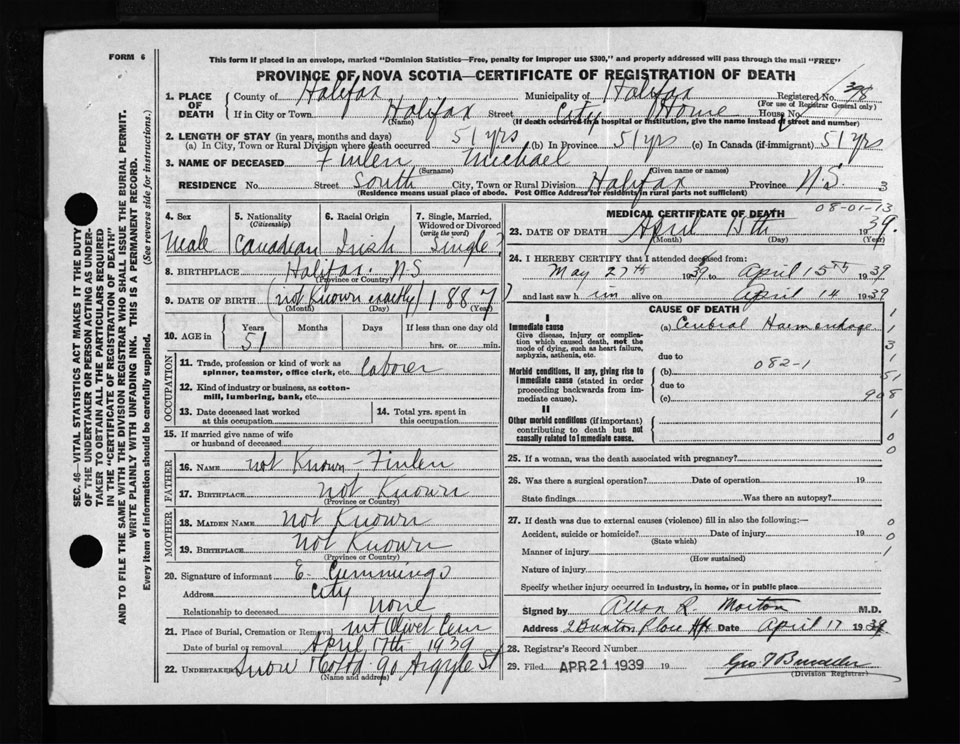 FORM 6
This form if placed in an envelope, marked "Dominion Statistics—Free, penalty for improper use $300," and properly addressed will pass through the mail "FREE"
PROVINCE OF NOVA SCOTIA—CERTIFICATE OF REGISTRATION OF DEATH
SEC. 46—VITAL STATISTICS ACT MAKES IT THE DUTY
OF THE UNDERTAKER OR PERSON ACTING AS UNDER-
TAKER TO OBTAIN ALL THE PARTICULARS REQUIRED
IN THE "CERTIFICATE OF REGISTRATION OF DEATH"
AND TO FILE THE SAME WITH THE DIVISION REGISTRAR WHO SHALL ISSUE THE BURIAL PERMIT.
WRITE PLAINLY WITH UNFADING INK. THIS IS A PERMANENT RECORD.
Every item of information should be carefully supplied. (See reverse side for instructions.)
1. PLACE OF DEATH County of Halifax Municipality of Halifax Registered No. 398
(For use of Registrar General only)
If in City or Town Halifax Street City Home House No.
(Name) (If death occurred in a hospital or institution, give the name instead of street and number)
2. LENGTH OF STAY (in years, months and days)
(a) In City, Town or Rural Division where death occurred 51 yrs (b) In Province 51 yrs (c) In Canada (if immigrant) 51 yrs
3. NAME OF DECEASED Finlen Michael
(Surname) (Given name or names)
RESIDENCE No. Street South City, Town or Rural Division Halifax Province N.S. 3
(Residence means usual place of abode. Post Office Address for residents in rural parts not sufficient)
4. Sex 5. Nationality (Citizenship) 6. Racial Origin 7. Single, Married, Widowed or Divorced (write the word)
Meale Canadean Irish Single
8. BIRTHPLACE Halifax. N S
(Province or Country)
9. DATE OF BIRTH (not Known exactly) 1887
(Month) (Day) (Year)
10. AGE in Years Months Days If less than one day old
51 hrs. or min.
OCCUPATION
11. Trade, profession or kind of work as spinner, teamster, office clerk, etc. Laborer
12. Kind of industry or business, as cotton-mill, lumbering, bank, etc.
13. Date deceased last worked at this occupation
14. Total yrs. spent in this occupation
15. If married give name of wife or husband of deceased
FATHER
16. NAME not Known - Finlen
17. BIRTHPLACE not Known
(Province or Country)
MOTHER
18. MAIDEN NAME not Known
19. BIRTHPLACE not Known
(Province or Country)
20. Signature of informant E. Cummings
Address City
Relationship to deceased none
21. Place of Burial, Cremation or Removal Mt Olivet Cem
Date of burial or removal April 17th 1939
22. UNDERTAKER Snow 90 Argyle St
(Name and address)
MEDICAL CERTIFICATE OF DEATH
08-01-13
23. DATE OF DEATH April 15th 1939.
(Month) (Day) (Year)
24. I HEREBY CERTIFY that I attended deceased from:
May 27th 1939 to April 15th 1939
and last saw him alive on April 14 1939
CAUSE OF DEATH
I
Immediate cause
Give disease, injury or complication which caused death, not the mode of dying, such as heart failure, asphyxia, asthenia, etc.
(a) Cerebral Haemorrhage
due to
Morbid conditions, if any, giving rise to immediate cause (stated in order proceeding backwards from immediate cause).
(b) 082-1
due to
(c)
II
Other morbid conditions (if important) contributing to death but not causally related to immediate cause.
1
1
3
1
51
908
1
0
0
25. If a woman, was the death associated with pregnancy?
26. Was there a surgical operation? Date of operation 19
State findings Was there an autopsy?
27. If death was due to external causes (violence) fill in also the following:— 0
Accident, suicide or homicide? Date of injury 19 0
(State which)
Manner of injury 1
(How sustained)
Nature of injury
Specify whether injury occurred in industry, in home, or in public place
Signed by Allan R. Morton M.D.
Address Place Hfx Date April 17 1939
28. Registrar's Record Number
29. Filed APR 21 1939 19
(Division Registrar)